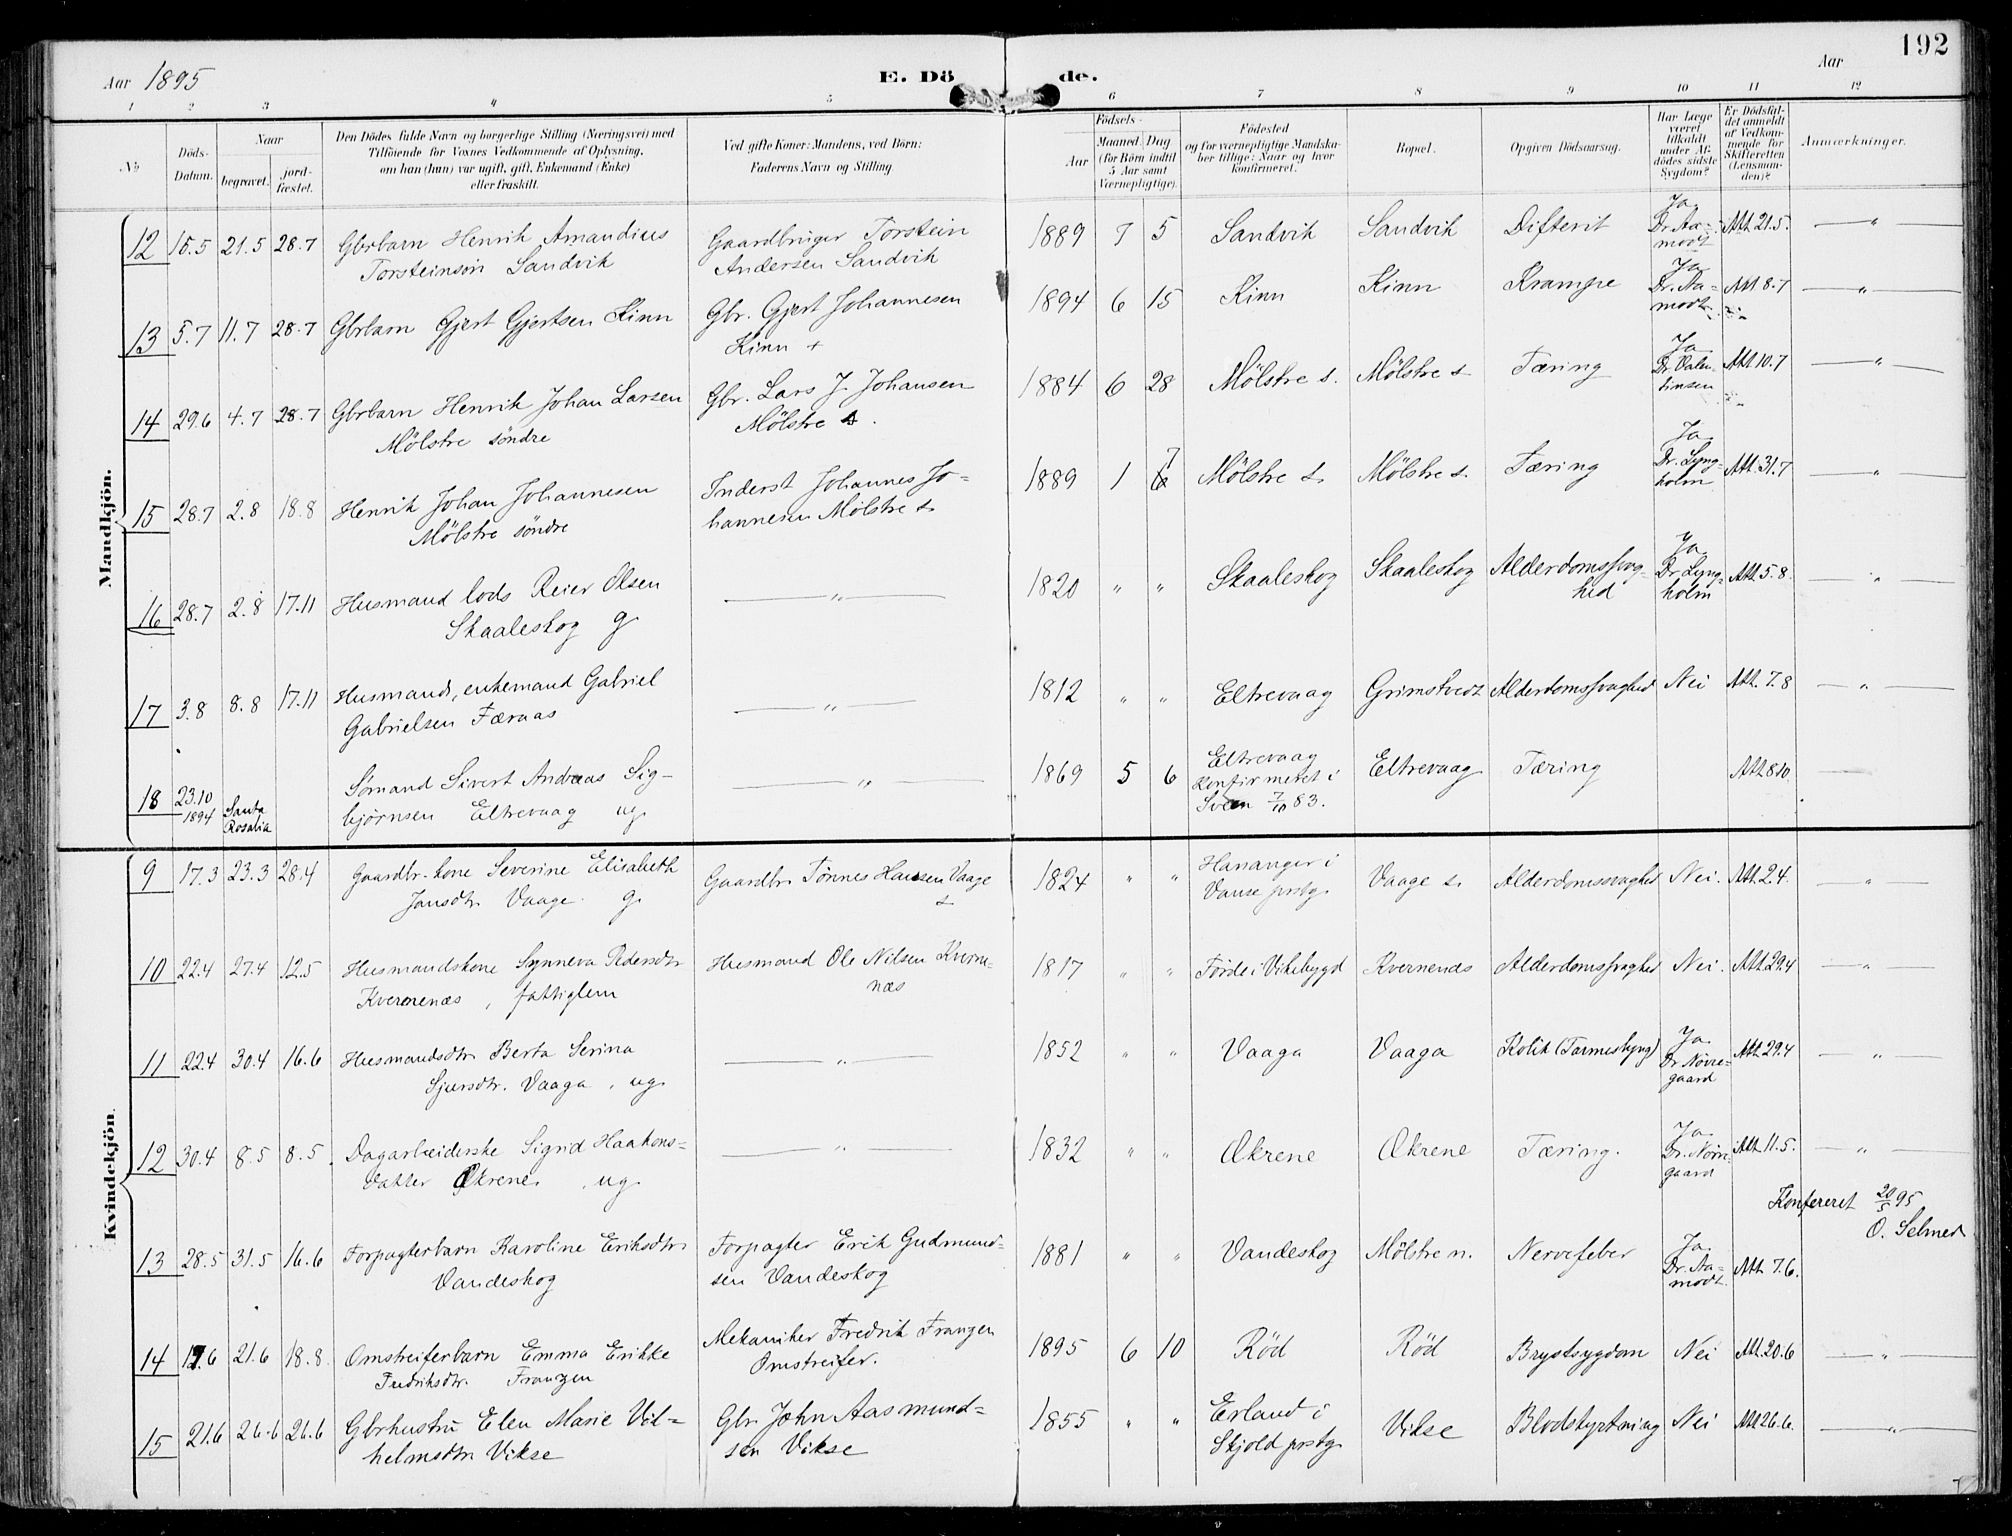 192
Aar 1895
E. Dö de.
Aar
1 2 3 4 5 6 7 8 9 10 11 12
No
Döds-Datum.
Naar
begravet.
jord-fæstet.
Den Dödes fulde Navn og borgerlige Stilling (Næringsvei) med
Tilföiende for Voxnes Vedkommende af Oplysning,
om han (hun) var ugift, gift, Enkemand (Enke)
eller fraskilt.
Ved gifte Koner: Mandens, ved Börn:
Faderens Navn og Stilling.
Födsels-
Aar
Maaned Dag
(for Börn indtil
5 Aar samt
Værnepligtige).
Födested
og for værnepligtige Mandska-
ber tillige: Naar og hvor
konfirmeret.
Bopæl.
Opgiven Dödsaarsag.
Har Læge
været
tilkaldt
under Af-
dödes sidste
Sygdom?
Er Dödsfal-
det anmeldt
af Vedkom-
mende for
Skifteretten
(Lensman-
den)?
Anmærkninger.
Mandkjön.
12 15.5 21.5 28.7 Gbrbarn Henrik Amandius Gaardbruger Torstein 1889 7 5 Sandvik Sandvik Difterit Ja Dr. Aa- Att 21.5. "
Torsteinson Sandvik Andersen Sandvik modt
13 5.7 11.7 28.7 Gbrbarn Gjert Gjertsen Kinn Gbr. Gjert Johannesen 1894 6 15 Kinn Kinn Krampe Ja Dr. Aa- Att 8.7 "
Kinn + modt
14 29.6 4.7 28.7 Gbrbarn Henrik Johan Larsen Gbr. Lars J. Johansen 1884 6 28 Mölstre s. Mölstre s Tæring Ja Dr. Valen- Att 10.7 "
Mölstre söndre Mölstre s. tinsen
15 28.7 2.8 18.8 Henrik Johan Johannesen Inderst Johannes Jo- 1889 1 7 Mölstre s. Mölstre s. Tæring Ja Dr. Lyng- Att. 31.7 "
Mölstre söndre hannesen Mölstre s. holm
16 28.7 2.8 17.11 Husmand lods Reier Olsen " 1820 " " Skaaleskog Skaaleskog Alderdomssvag- Ja Dr. Lyng- Att. 5.8. "
Skaaleskog g hed holm
17 3.8 8.8 17.11 Husmand, enkemand Gabriel " 1812 " " Eltrevaag Grimstvedt Alderdomssvaghed Nei Att. 7.8 "
Gabrielsen Færaas
18 23.10 Sömand Sivert Andreas Sig- " 1869 5 6 Eltrevaag Eltrevaag Tæring Att 8.10.
1894 Santa Rosalia björnsen Eltrevaag ug. Konfirmeret i
Sveen 7/10 83.
Kvindekjön.
9 17.3 23.3 28.4 Gaardbr. kone Severine Elisabeth Gaardbr. Tönnes Hansen Vaage 1824 " " Hananger i Vaage s. Alderdomssvaghed Nei. Att. 2.4. "
Jansdtr Vaage. g. s Vanse prstg.
10 22.4 27.4 12.5 Husmandskone Synneva Pedersdtr Husmand Ole Nilsen Kverne- 1817 " " Förde i Vikebygd Kvernenæs Alderdomssvaghed Nei. Att. 29.4 "
Kvernenæs, fattiglem næs
11 22.4 30.4 16.6 Husmandsdtr Berta Serina " 1852 " " Vaaga Vaaga Kolik (Tarmeslyng) Ja Dr. Nörre- Att. 29.4 "
Sjursdtr. Vaaga, ug. gaard
12 30.4 8.5 8.5. Dagarbeiderske Sigrid Haakons- " 1832 " " Økrene Økrene Tæring. Ja Dr. Nörre- Att. 11.5. "
datter Økrene, ug. gaard
Konfereret 20/5 95
O. Selmer
13 28.5 31.5 16.6 Forpagterbarn Karoline Eriksdtr. Forpagter Erik Gudmund- 1881 " " Vandeskog Mölstre n. Nervefeber Ja Dr. Aa- Att. 7.6.
Vandeskog sen Vandeskog modt
14 17.6 21.6 18.8 Omstreiferbarn Emma Erikke Mekaniker Fredrik Franzen 1895 6 10 Röd Röd Brystsygdom Nei Att. 20.6 "
Fredriksdtr. Franzen Omstreifer.
15 21.6 26.6 26.6 Gbrhustru Elen Marie Vil- Gbr. John Aasmund- 1855 " " Erland i Vikse Blodstyrtning Nei Att 26.6. "
helmsdtr Vikse sen Vikse Skjold prstg.